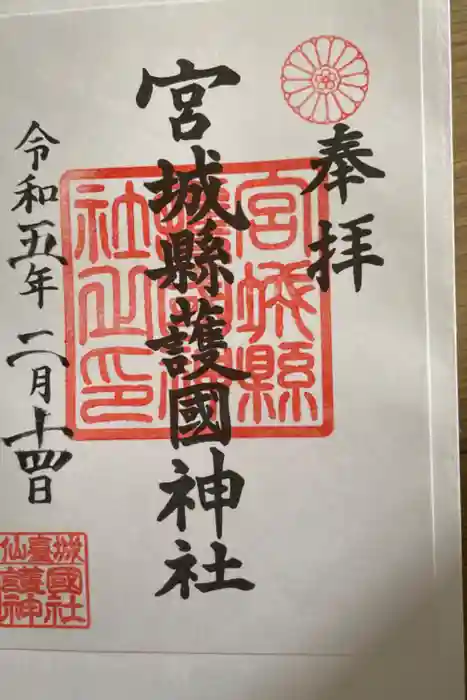 奉拝
宮城縣護國神社
宮城縣
社之印
令和五年二月十四日
仙臺城
護國
神社